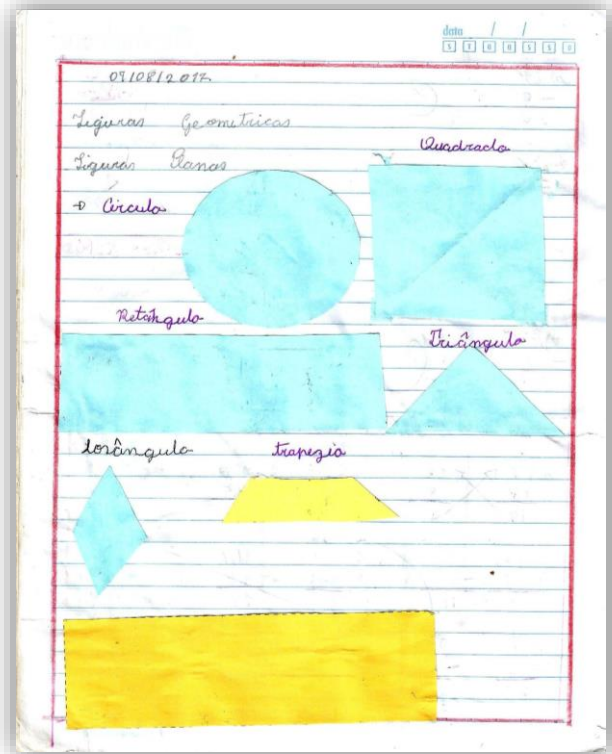 data / /
S T Q Q S S D
09/08/2012
Figuras Geometricas
Figuras Planas
Quadrado
Círculo
Retângulo
Triângulo
losângulo
trapezio